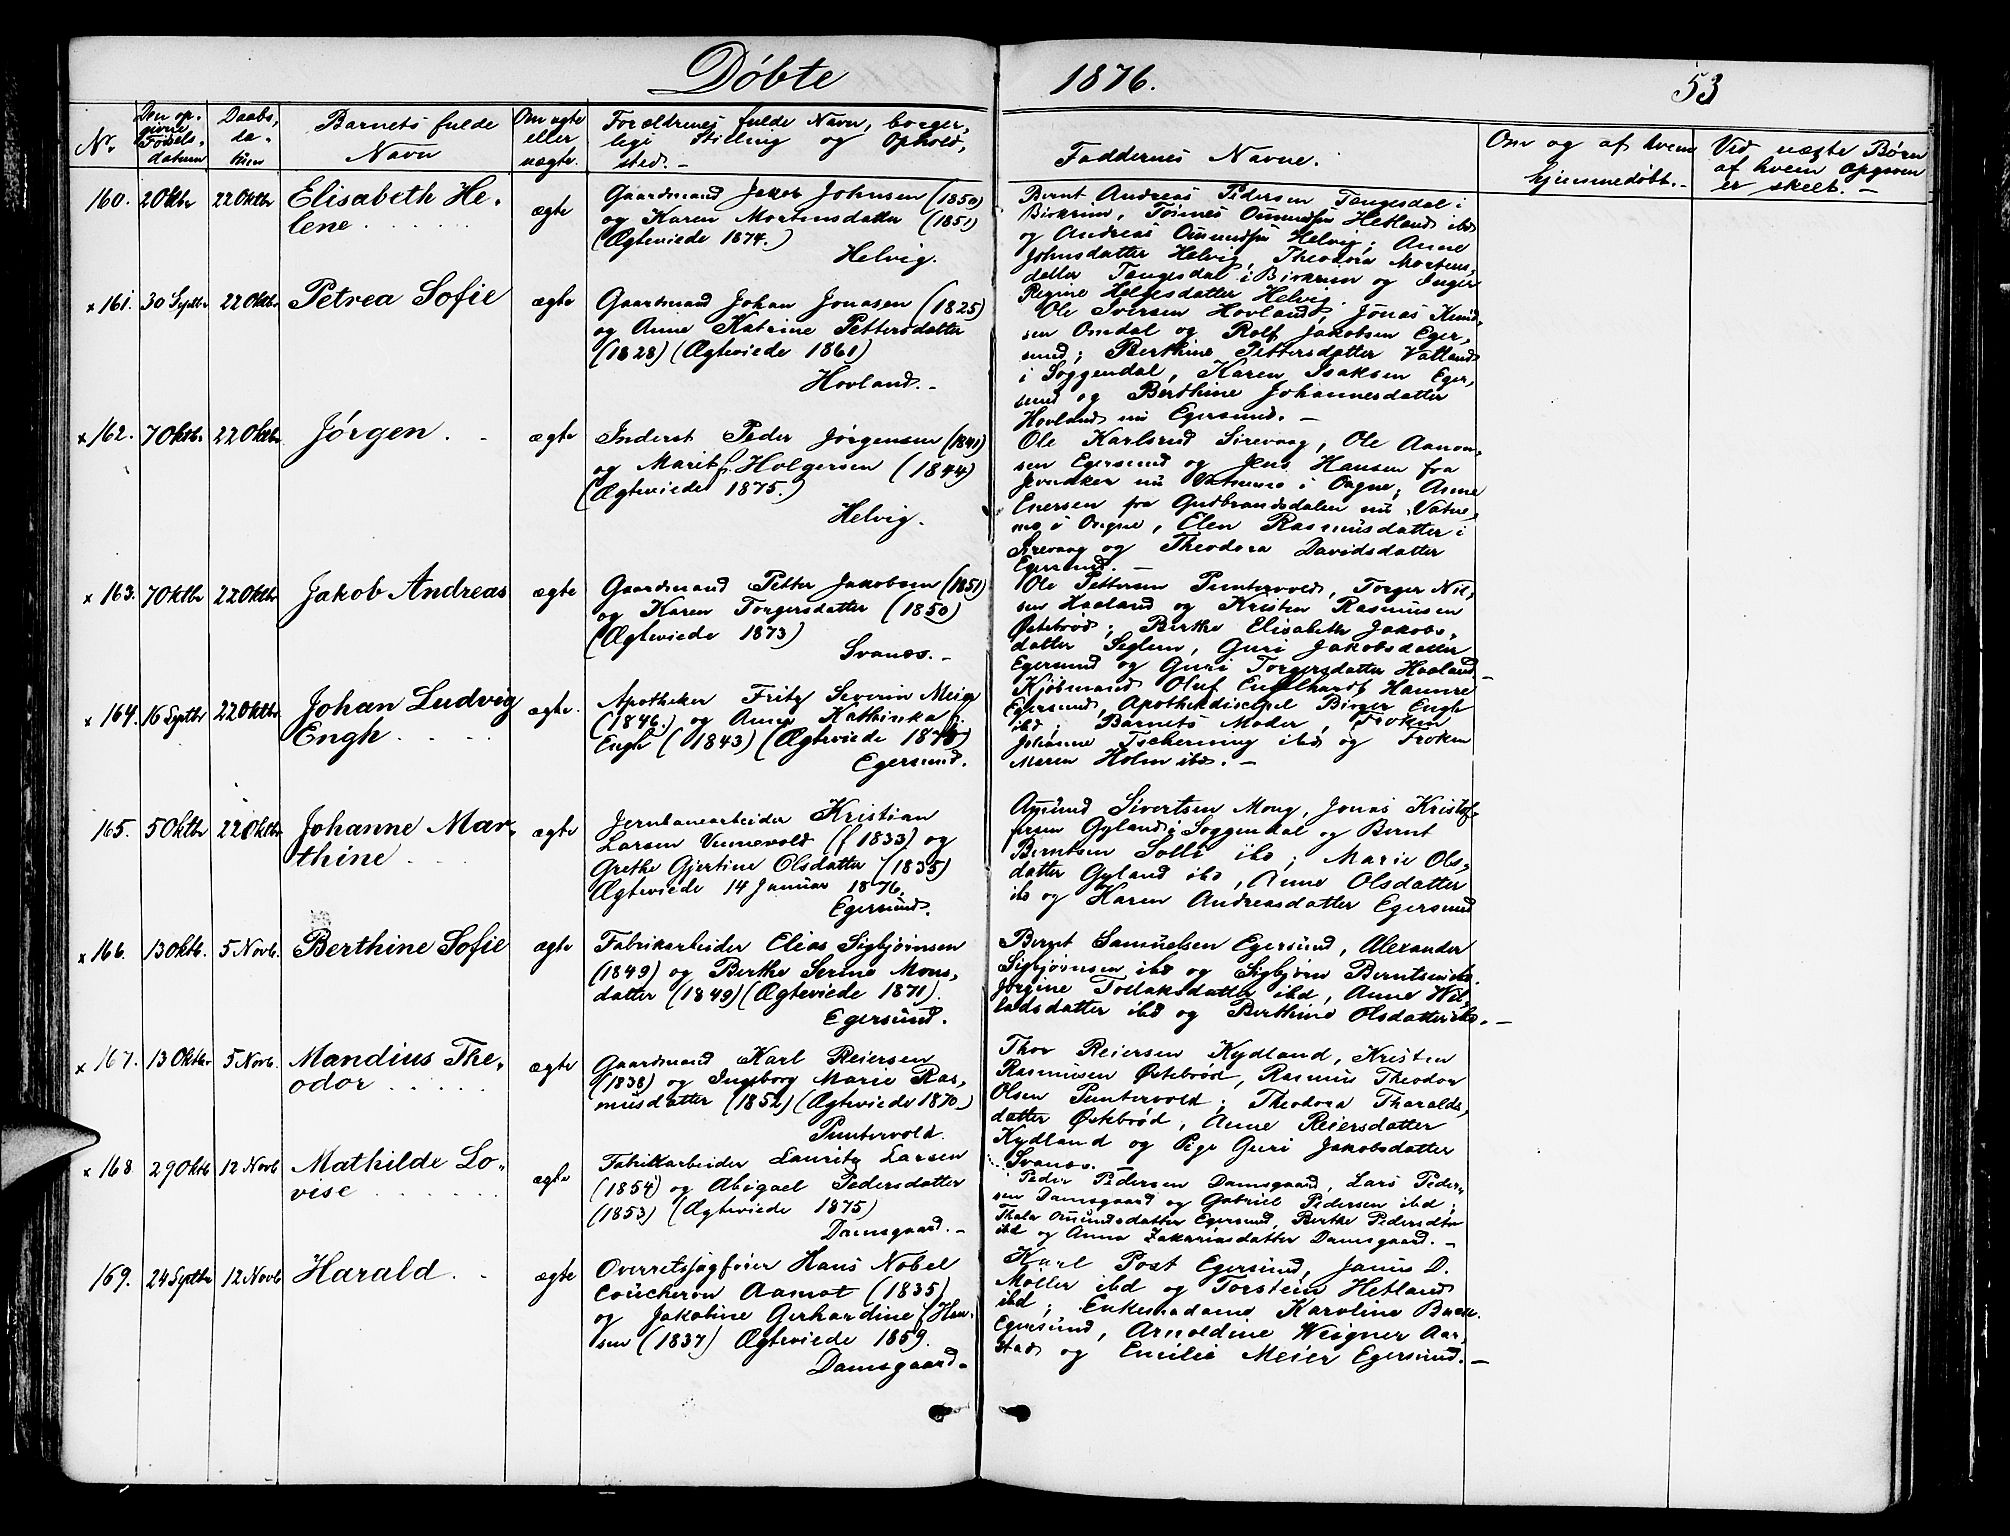 Døbte 1876. 53
No. Den op-
givne
Fødsels-
datum
Daabs-
da-
tum
Barnets fulde
Navn
Om ægte
eller
uægte.
Forældrenes fulde Navn, borger-
lige Stilling og Ophold,
sted. -
Faddernes Navne.
Om og af hvem
hjemmedöbt. -
Ved uægte Börn
af hvem Opgaven
er skeet. -
160. 2 Oktbr 22 Oktbr Elisabeth He-
lene
ægte
Gaardmand Jakob Johnsen (1850)
og Karen Mortensdatter (1851)
(Ægteviede 1874.)
Helvig.
Bernt Andreas Pedersen Tengesdal i
Birkrem, Tönnes Omundsen Hetland ibd
og Andreas Omundsen Helvig; Anne
Johnsdatter Helvig, Theodora Mortens-
datter Tengesdal i Birkrem og Inger
Regine Helgesdatter Helvig.
x 161. 30 Septbr 22 Oktbr Petrea Sofie ægte
Gaardmand Johan Jonasen (1825)
og Anne Katrine Pettersdatter
(1828) (Ægteviede 1861)
Hovland. -
Ole Iversen Hovland, Jonas Knud-
sen Omdal og Rolf Jakobsen Eger-
sund; Berthine Pettersdatter Vatland
i Soggendal, Karen Isaksen Eger-
sund og Berthine Johannesdatter
Hovland nu Egersund. -
x 162. 7 Oktbr. 22 Oktbr Jörgen. ægte
Inderst Peder Jörgensen (1841)
og Marit f. Holgersen (1844)
(Ægteviede 1875.)
Helvig.
Ole Karlsrud Sirevaag, Ole Aanon-
sen Egersund og Jens Hansen fra
Jevnaker nu Vatnemo i Ongne; Anne
Enersen fra Gudbrandsdalen nu Vatne-
mo i Ongne, Elen Rasmusdatter i
Sirevaag og Theodora Davidsdatter
Egersund. -
x 163. 7 Oktbr 22 Oktbr Jakob Andreas ægte
Gaardmand Petter Jakobsen (1851)
og Karen Torgersdatter (1850)
(Ægteviede 1873)
Svanes. -
Ole Pettersen Puntervold, Torger Nil-
sen Haaland og Kristen Rasmusen
Östebröd; Berthe Elisabeth Jakobs-
datter Seglem, Guri Jakobsdatter
Egersund og Guri Torgersdatter Haaland. -
x 164. 16 Septbr 22 Oktbr. Johan Ludvig
Engh
ægte.
Apotheker Fritz Severin Meier
(1846.) og Anna Kathinka f.
Engh (1843) (Ægteviede 1873)
Egersund.
Kjöbmand Oluf Engelhardt Hannre
Egersund, Apothekdiscipel Birger Engh
ibd; Barnets Moder, Fröken
Johanne Tscherning ibd og Fröken
Maren Holm ibd. -
165. 5 Oktbr 22 Oktbr. Johanne Mar-
thine
ægte
Jernbanearbeider Kristian
Larsen Vennevold (f 1833) og
Grethe Gjertine Olsdatter (1835)
Ægteviede 14 Januar 1876.
Egersund.
Amund Sivertsen Mong, Jonas Kristof-
fersen Gyland i Soggendal og Bernt
Berntsen Solli ibd; Marie Ols-
datter Gyland ibd, Anne Olsdatter
ibd og Karen Andreasdatter Egersund
x 166. 13 Oktbr. 5 Novb. Berthine Sofie ægte
Fabrikarbeider Elias Sigbjörnsen
(1849) og Berthe Serine Mons-
datter (1849) (Ægteviede 1871).
Egersund.
Bernt Samuelsen Egersund, Alexander
Sigbjörnsen ibd og Sigbjörn Berntsen ibd.
Jörgine Tollaksdatter ibd, Anne Wil-
ladsdatter ibd og Berthine Olsdatter ibd. -
x 167. 13 Oktbr 5 Novb. Mandius The-
odor
ægte
Gaardmand Karl Reiersen
(1838) og Ingeborg Marie Ras-
musdatter (1852) (Ægteviede 1870.)
Puntervold.
Thor Reiersen Kydland, Kristen
Rasmusen Östebröd, Rasmus Theodor
Olsen Puntervold; Theodora Tharalds-
datter Östebröd, Anne Reiersdatter
Kydland og Pige Guri Jakobsdatter
Svanes.
x 168 29 Oktb 12 Novb Mathilde Lo-
vise
ægte
Fabrikarbeider Lauritz Larsen
(1854) og Abigael Pedersdatter
(1853) (Ægteviede 1875)
Damsgaard. -
Peder Pedersen Damsgaard, Lars Peder-
sen Damsgaard og Gabriel Pedersen ibd;
Thala Omundsdatter Egersund, Berthe Pedersdtr
ibd og Anna Zakariasdatter Damsgaard. -
169. 24 Septbr 12 Novb Harald. ægte
Overretssagförer Hans Nobel
Coucheron Aamot (1835)
og Jakobine Gerhardine f. Han-
sen (1837) Ægteviede 1859.
Damsgaard. -
Karl Post Egersund, Janus D.
Möller ibd og Torstein Hetland
ibd; Enkemadame Karoline
Egersund, Arnoldine Weigner Aar-
stad og Emilie Meier Egersund. -